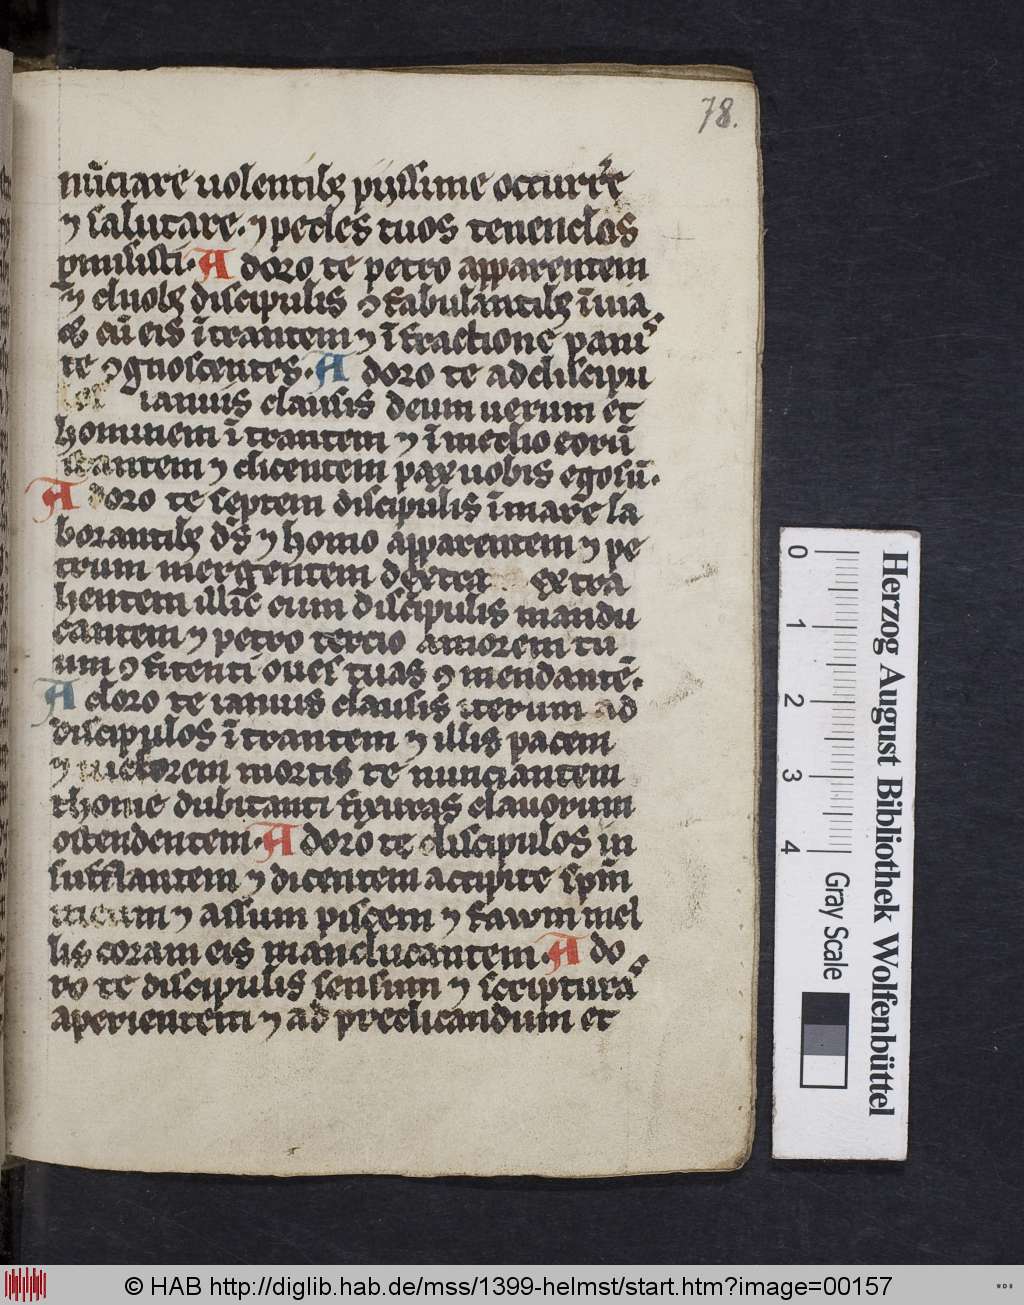 78.
nūciare uolentibꝫ pijssime occurre͛
⁊ salutare. ⁊ pedes tuos tenendos
ꝑmisisti. Adoro te petro apparentem
⁊ duobꝫ discipulis ꝯfabulantibꝫ ī uia
cū eis ītrantem ⁊ ī fractione panis
te ꝯgnoscentes. Adoro te ad discipu
los ianuis clausis deum uerum et
hominem ītrantem ⁊ ī medio eorū
stantem ⁊ dicentem pax uobis ego sū.
Adoro te septem discipulis ī mare la
borantibꝫ ds̄ ⁊ homo apparentem ⁊ pe
trum mergentem dextera extra
hentem illic̄ cum discipulis mandu
cantem ⁊ petro tercio amorem tu
um ꝯfitenti oues tuas ꝯmendantē.
Adoro te ianuis clausis iterum ad
discipulos ītrantem ⁊ illis pacem
⁊ uictorem mortis te nunciantem
thome dubitanti fixuras clauorum
ostendentem. Adoro te discipulos in
sufflantem ⁊ dicentem accipite spm̄
meum ⁊ assum piscem ⁊ fawm mel
lis coram eis manducantem. Ado
ro te discipulis sensum ⁊ scripturas
aperientem ⁊ ad predicandum et
0 1 2 3 4
Gray Scale
Herzog August Bibliothek Wolfenbüttel
© HAB http://diglib.hab.de/mss/1399-helmst/start.htm?image=00157